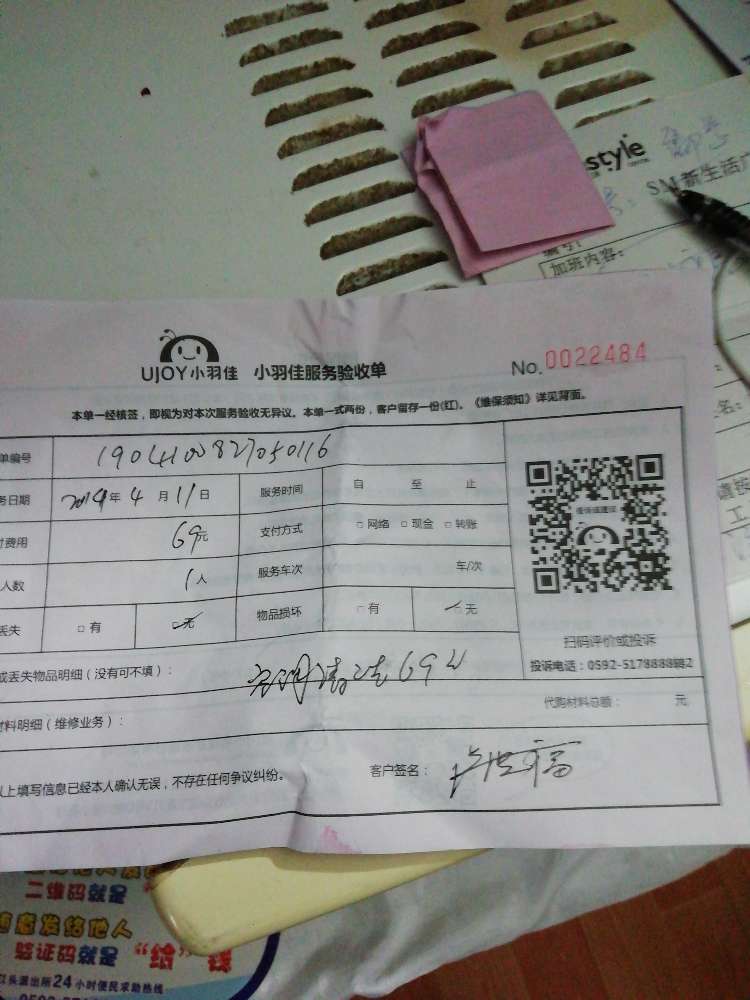 style
SM新生活广
加班内容：
UJOY小羽佳 小羽佳服务验收单 No.0022484
本单一经核签，即视为对本次服务验收无异议。本单一式两份，客户留存一份(红)。《维保须知》详见背面。
单编号 1904100827050116
务日期 2019年4月11日 服务时间 自 至 止
付费用 69元 支付方式 □网络 □现金 □转账
人数 1人 服务车次 车/次
丢失 □有 □无 物品损坏 □有 □无
扫码评价或投诉
投诉电话：0592-5178888转2
或丢失物品明细（没有可不填）： 空调清洗69元
代购材料总额： 元
材料明细（维修业务）：
以上填写信息已经本人确认无误，不存在任何争议纠纷。 客户签名：
二维码就是
随意发给他人
验证码就是“给”钱
头派出所24小时便民求助热线